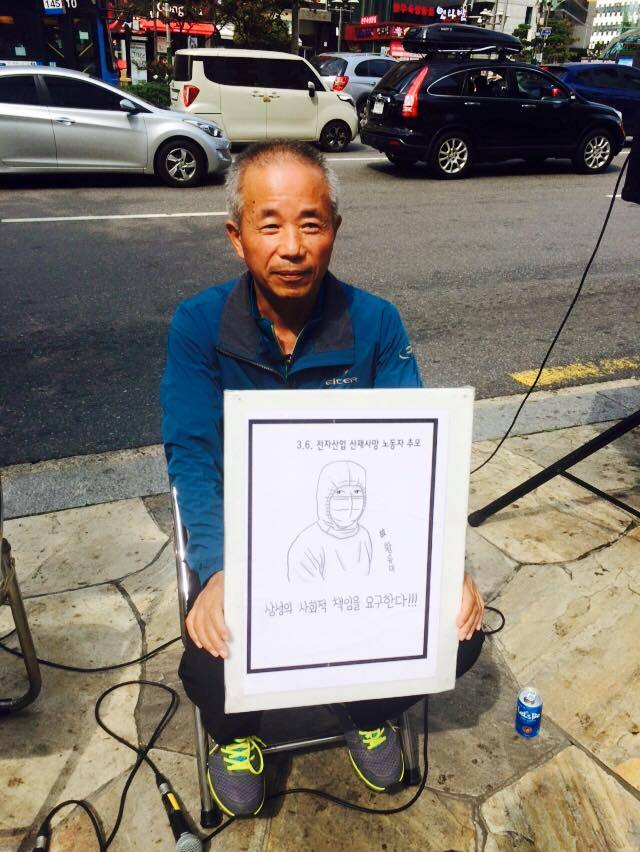 145 10
EIDER
3.6. 전자산업 산재사망 노동자 추모
故
삼성의 사회적 책임을 요구한다!!!
Let's Be